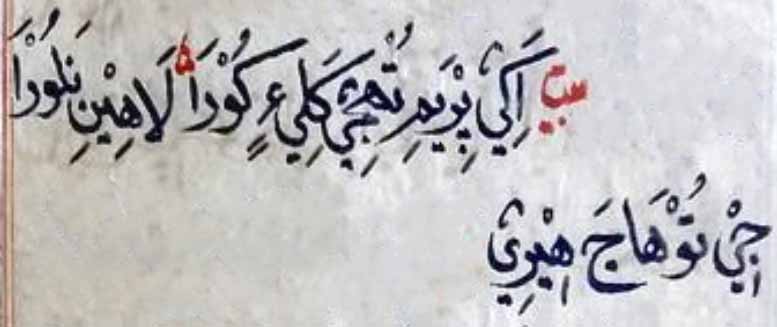 بيت اَکِيْ پِرِيَمِ تُهِجِيْ کَلِيءِ کُوْرَا لَاهِيْنِ نَلُوْرَا
جِيْ تُوْهَاجَ هِيْرِيْ